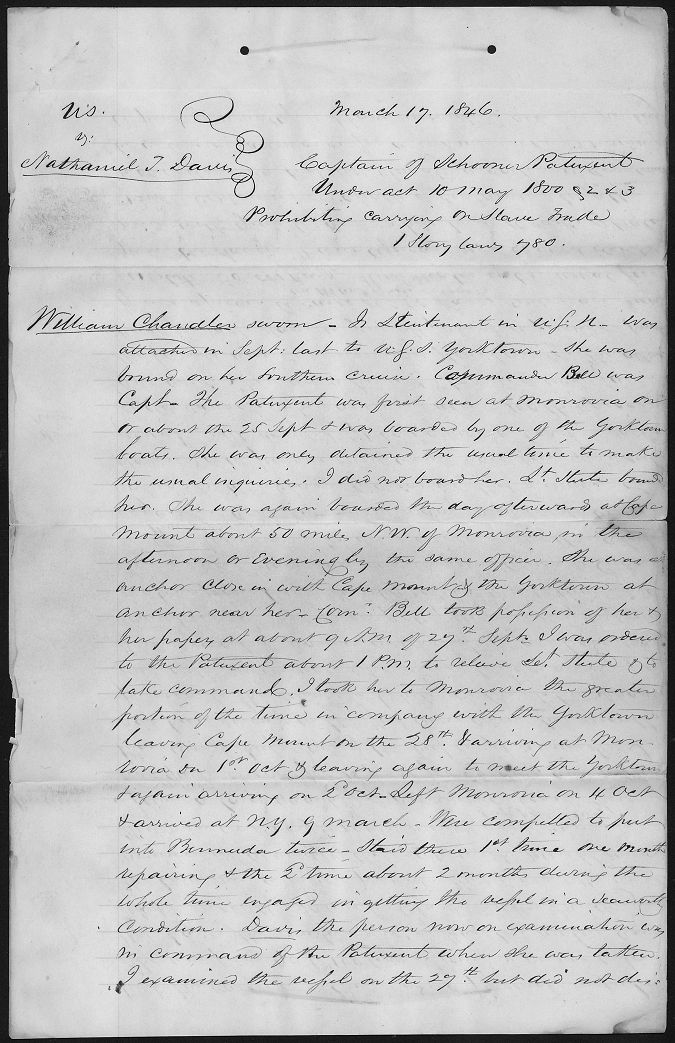 U.S.
March 17. 1846.
vs:
Nathaniel T. Davis
Captain of Schooner Patuxent
Under act 10 May 1800 § 2 & 3
Prohibiting Carrying on Slave Trade
1 Story Laws 780.
William Chandler sworn - Is Lieutenant in U.S. N - was
attached in Sept: last to U.S.S. Yorktown - She was
bound on her Southern cruise. Commander Bell was
Capt - The Patuxent was first seen at Monrovia on
or about the 25 Sept & was boarded by one of the Yorktown
boats. She was only detained the usual time to make
the usual inquiries. I did not board her. Lt. Steele board
her. She was again boarded the day afterwards at Cape
Mount about 50 miles N.W. of Monrovia in the
afternoon or Evening by the same officer. She was at
anchor close in with Cape Mount & the Yorktown at
anchor near her - Com: Bell took possession of her &
her papers at about 9 A.M of 27th Sept - I was ordered
to the Patuxent about 1 P.M. to relieve Lt Steele & to
take command. I took her to Monrovia the greater
portion of the time in company with the Yorktown
leaving Cape Mount on the 28th & arriving at Mon-
rovia on 1st Oct & leaving again to meet the Yorktown
& again arriving on 2d Oct - Left Monrovia on 4 Oct
& arrived at N.Y. 9 march - Were compelled to put
into Bermuda twice - Staid there 1st time one month
repairing & the 2d time about 2 months during the
whole time engaged in getting the vessel in a seaworthy
Condition. Davis the person now on examination was
in command of the Patuxent when she was taken.
I examined the vessel on the 27th but did not dis: